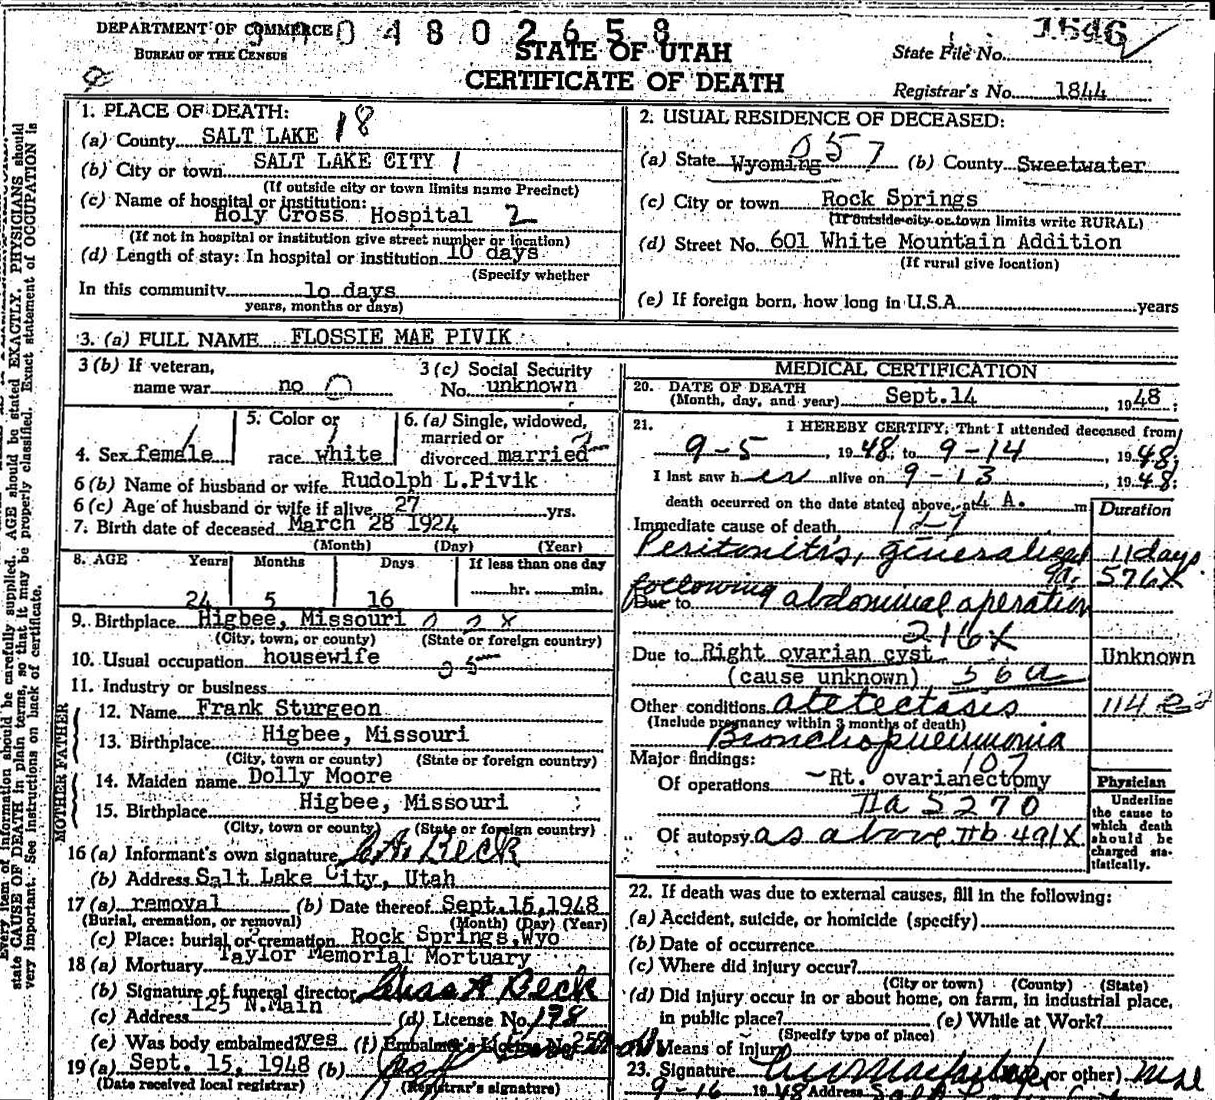 DEPARTMENT OF COMMERCE
BUREAU OF THE CENSUS
0 4 8 0 2 6 5 8
STATE OF UTAH
CERTIFICATE OF DEATH
1546
State File No.
Registrar's No. 1844
1. PLACE OF DEATH:
(a) County SALT LAKE 18
(b) City or town SALT LAKE CITY 1
(If outside city or town limits name Precinct)
(c) Name of hospital or institution:
Holy Cross Hospital 2
(If not in hospital or institution give street number or location)
(d) Length of stay: In hospital or institution 10 days
(Specify whether
In this community 10 days
years, months or days)
2. USUAL RESIDENCE OF DECEASED:
057
(a) State Wyoming (b) County Sweetwater
(c) City or town Rock Springs
(If outside city or town limits write RURAL)
(d) Street No. 601 White Mountain Addition
(If rural give location)
(e) If foreign born, how long in U.S.A. years
3. (a) FULL NAME FLOSSIE MAE PIVIK
3 (b) If veteran,
name war no
3 (c) Social Security
No. unknown
4. Sex female
5. Color or
race white
6. (a) Single, widowed,
married or
divorced married
6 (b) Name of husband or wife Rudolph L. Pivik
6 (c) Age of husband or wife if alive 27 yrs.
7. Birth date of deceased March 28 1924
(Month) (Day) (Year)
8. AGE Years Months Days If less than one day
24 5 16 hr. min.
9. Birthplace Higbee, Missouri
(City, town, or county) (State or foreign country)
10. Usual occupation housewife
11. Industry or business
FATHER
12. Name Frank Sturgeon
13. Birthplace Higbee, Missouri
(City, town or county) (State or foreign country)
MOTHER
14. Maiden name Dolly Moore
15. Birthplace Higbee, Missouri
(City, town or county) (State or foreign country)
16 (a) Informant's own signature C.A. Beck
(b) Address Salt Lake City, Utah
17 (a) removal (b) Date thereof Sept. 15, 1948
(Burial, cremation, or removal) (Month) (Day) (Year)
(c) Place: burial or cremation Rock Springs, Wyo
18 (a) Mortuary Taylor Memorial Mortuary
(b) Signature of funeral director Chas A Beck
(c) Address 125 N. Main (d) License No. 198
(e) Was body embalmed? yes (f) Embalmer's License No.
19 (a) Sept. 15, 1948 (b)
(Date received local registrar) (Registrar's signature)
MEDICAL CERTIFICATION
20. DATE OF DEATH
(Month, day, and year) Sept. 14, 1948;
21. I HEREBY CERTIFY, That I attended deceased from
9-5, 1948, to 9-14, 1948;
I last saw her alive on 9-13, 1948;
death occurred on the date stated above, at 4 A. m
Duration
Immediate cause of death 129
Peritonitis, generalized 11 days
576X
following abdominal operation
Due to
216X
Due to Right ovarian cyst Unknown
(cause unknown) 56a
Other conditions atelectasis
(Include pregnancy within 3 months of death)
Bronchopneumonia
107
Major findings:
Of operations Rt. ovarianectomy
IIa 5270
Of autopsy as above IIb 491X
Physician
Underline
the cause to
which death
should be
charged sta-
tistically.
22. If death was due to external causes, fill in the following:
(a) Accident, suicide, or homicide (specify)
(b) Date of occurrence
(c) Where did injury occur?
(City or town) (County) (State)
(d) Did injury occur in or about home, on farm, in industrial place,
in public place? (e) While at Work?
(Specify type of place)
Means of injury
23. Signature or other)
9-16 1948 Address
Every item of information should be carefully supplied. AGE should be stated EXACTLY. PHYSICIANS should
state CAUSE OF DEATH in plain terms, so that it may be properly classified. Exact statement of OCCUPATION is
very important. See instructions on back of certificate.